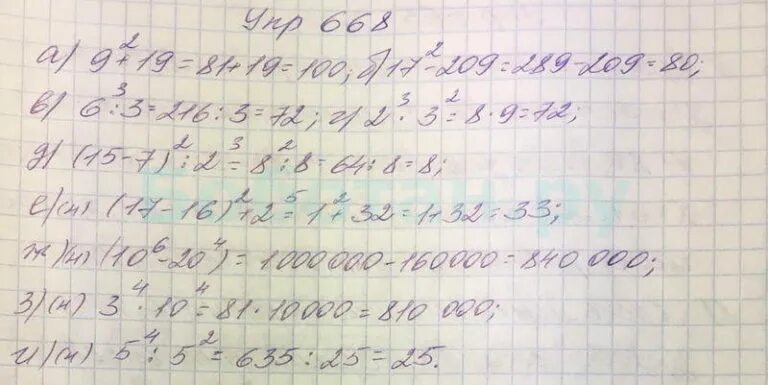 Упр 668
а) 9²+19=81+19=100; б) 17²-209=289-209=80;
в) 6³:3=216:3=72; г) 2³·3²=8·9=72;
д) (15-7)²:2³=8²:8=64:8=8;
е)(н) (17-16)²+2⁵=1²+32=1+32=33;
ж)(н) (10⁶-20⁴)=1000000-160000=840 000;
з)(н) 3⁴·10⁴=81·10000=810 000;
и)(н) 5⁴:5²=635:25=25.